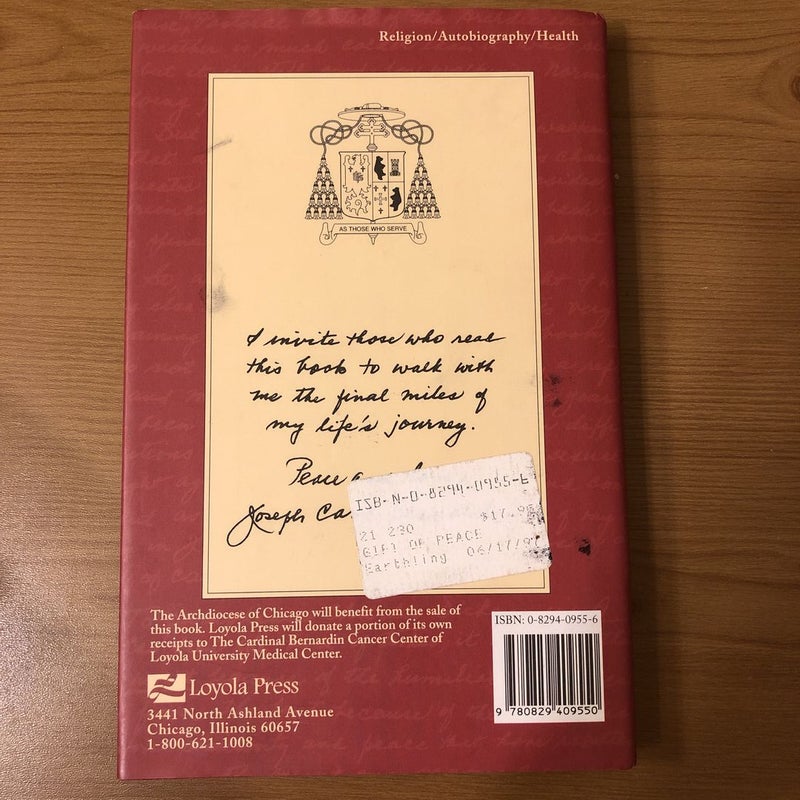 Religion/Autobiography/Health
AS THOSE WHO SERVE
I invite those who read
this book to walk with
me the final miles of
my life's journey.
Peace
Joseph Ca
ISB-N-0-8294-0955-6
21 230 $17.95
GIFT OF PEACE
Earthling 06/17/97
The Archdiocese of Chicago will benefit from the sale of
this book. Loyola Press will donate a portion of its own
receipts to The Cardinal Bernardin Cancer Center of
Loyola University Medical Center.
Loyola Press
3441 North Ashland Avenue
Chicago, Illinois 60657
1-800-621-1008
ISBN: 0-8294-0955-6
9 780829 409550